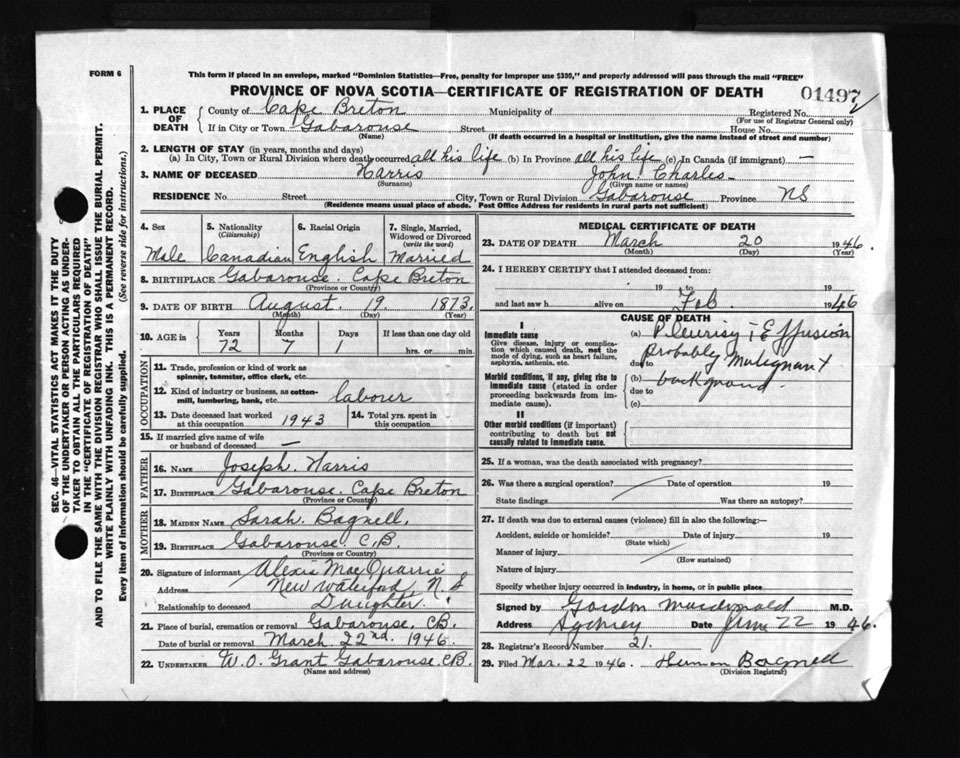 FORM 6
This form if placed in an envelope, marked "Dominion Statistics—Free, penalty for improper use $300," and properly addressed will pass through the mail "FREE"
PROVINCE OF NOVA SCOTIA—CERTIFICATE OF REGISTRATION OF DEATH
01497
1. PLACE OF DEATH
County of Cape Breton Municipality of Registered No.
(For use of Registrar General only)
If in City or Town Gabarouse Street House No.
(Name) (If death occurred in a hospital or institution, give the name instead of street and number)
2. LENGTH OF STAY (in years, months and days)
(a) In City, Town or Rural Division where death occurred all his life (b) In Province all his life (c) In Canada (if immigrant) —
3. NAME OF DECEASED Harris John Charles
(Surname) (Given name or names)
RESIDENCE No Street City, Town or Rural Division Gabarouse Province NS
(Residence means usual place of abode. Post Office Address for residents in rural parts not sufficient)
4. Sex
Male
5. Nationality
(Citizenship)
Canadian
6. Racial Origin
English
7. Single, Married, Widowed or Divorced
(write the word)
Married
8. BIRTHPLACE Gabarouse Cape Breton
(Province or Country)
9. DATE OF BIRTH August 19 1873
(Month) (Day) (Year)
10. AGE in Years Months Days If less than one day old
72 7 1 hrs. or min.
OCCUPATION
11. Trade, profession or kind of work as spinner, teamster, office clerk, etc.
12. Kind of industry or business, as cotton-mill, lumbering, bank, etc. labourer
13. Date deceased last worked at this occupation 1943
14. Total yrs. spent in this occupation
15. If married give name of wife or husband of deceased —
FATHER
16. NAME Joseph Harris
17. BIRTHPLACE Gabarouse Cape Breton
(Province or Country)
MOTHER
18. MAIDEN NAME Sarah Bagnell
19. BIRTHPLACE Gabarouse C.B.
(Province or Country)
20. Signature of informant Alexis MacQuarrie
Address New Waterford N.S
Relationship to deceased Daughter
21. Place of burial, cremation or removal Gabarouse, CB.
Date of burial or removal March 22nd. 1946.
22. UNDERTAKER W.O. Grant Gabarouse, CB.
(Name and address)
MEDICAL CERTIFICATE OF DEATH
23. DATE OF DEATH March 20 1946.
(Month) (Day) (Year)
24. I HEREBY CERTIFY that I attended deceased from:
19 to 19
and last saw h alive on Feb. 1946
CAUSE OF DEATH
I
Immediate cause
Give disease, injury or complication which caused death, not the mode of dying, such as heart failure, asphyxia, asthenia, etc.
(a) Pleurisy c̄ Effusion
due to probably malignant
Morbid conditions, if any, giving rise to immediate cause (stated in order proceeding backwards from immediate cause).
(b) background
due to
(c)
II
Other morbid conditions (if important) contributing to death but not causally related to immediate cause.
25. If a woman, was the death associated with pregnancy?
26. Was there a surgical operation? Date of operation 19
State findings Was there an autopsy?
27. If death was due to external causes (violence) fill in also the following:—
Accident, suicide or homicide? Date of injury 19
(State which)
Manner of injury
(How sustained)
Nature of injury
Specify whether injury occurred in industry, in home, or in public place
Signed by Gordon Macdonald M.D.
Address Sydney Date June 22 1946.
28. Registrar's Record Number 21.
29. Filed Mar. 22 1946. Herman Bagnell
(Division Registrar)
SEC. 46—VITAL STATISTICS ACT MAKES IT THE DUTY
OF THE UNDERTAKER OR PERSON ACTING AS UNDER-
TAKER TO OBTAIN ALL THE PARTICULARS REQUIRED
IN THE "CERTIFICATE OF REGISTRATION OF DEATH"
AND TO FILE THE SAME WITH THE DIVISION REGISTRAR WHO SHALL ISSUE THE BURIAL PERMIT.
WRITE PLAINLY WITH UNFADING INK. THIS IS A PERMANENT RECORD.
Every item of information should be carefully supplied. (See reverse side for instructions.)